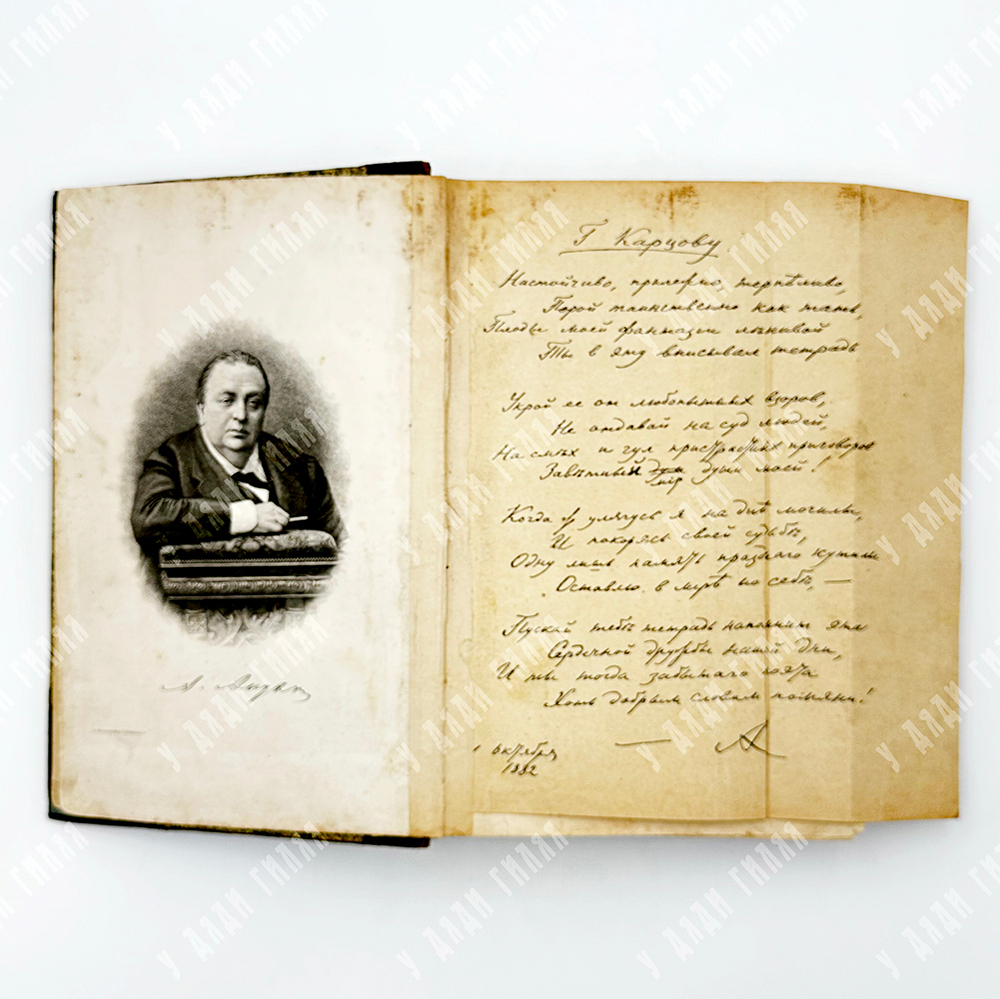 Г Карцову
Настойчиво, прилежно, терпѣливо,
Порой таинственно как тать,
Плоды моей фантазіи лѣнивой
Ты в эту вписывал тетрадь
Укрой ее от любопытных взоров,
Не отдавай на суд людей,
На смѣх и гул пристрастных приговоров
Завѣтный мір души моей!
Когда ж улягусь я на днѣ могилы,
И покорясь своей судьбѣ,
Одну лишь память празднаго кутилы
Оставлю в мірѣ по себѣ, —
Пускай тебѣ тетрадь напомнит эта
Сердечной дружбы нашей дни,
И ты тогда забытаго поэта
Хоть добрым словом помяни!
— А
1 октября
1882
А. Апухтин
У ДЯДИ ГИЛЯЯ